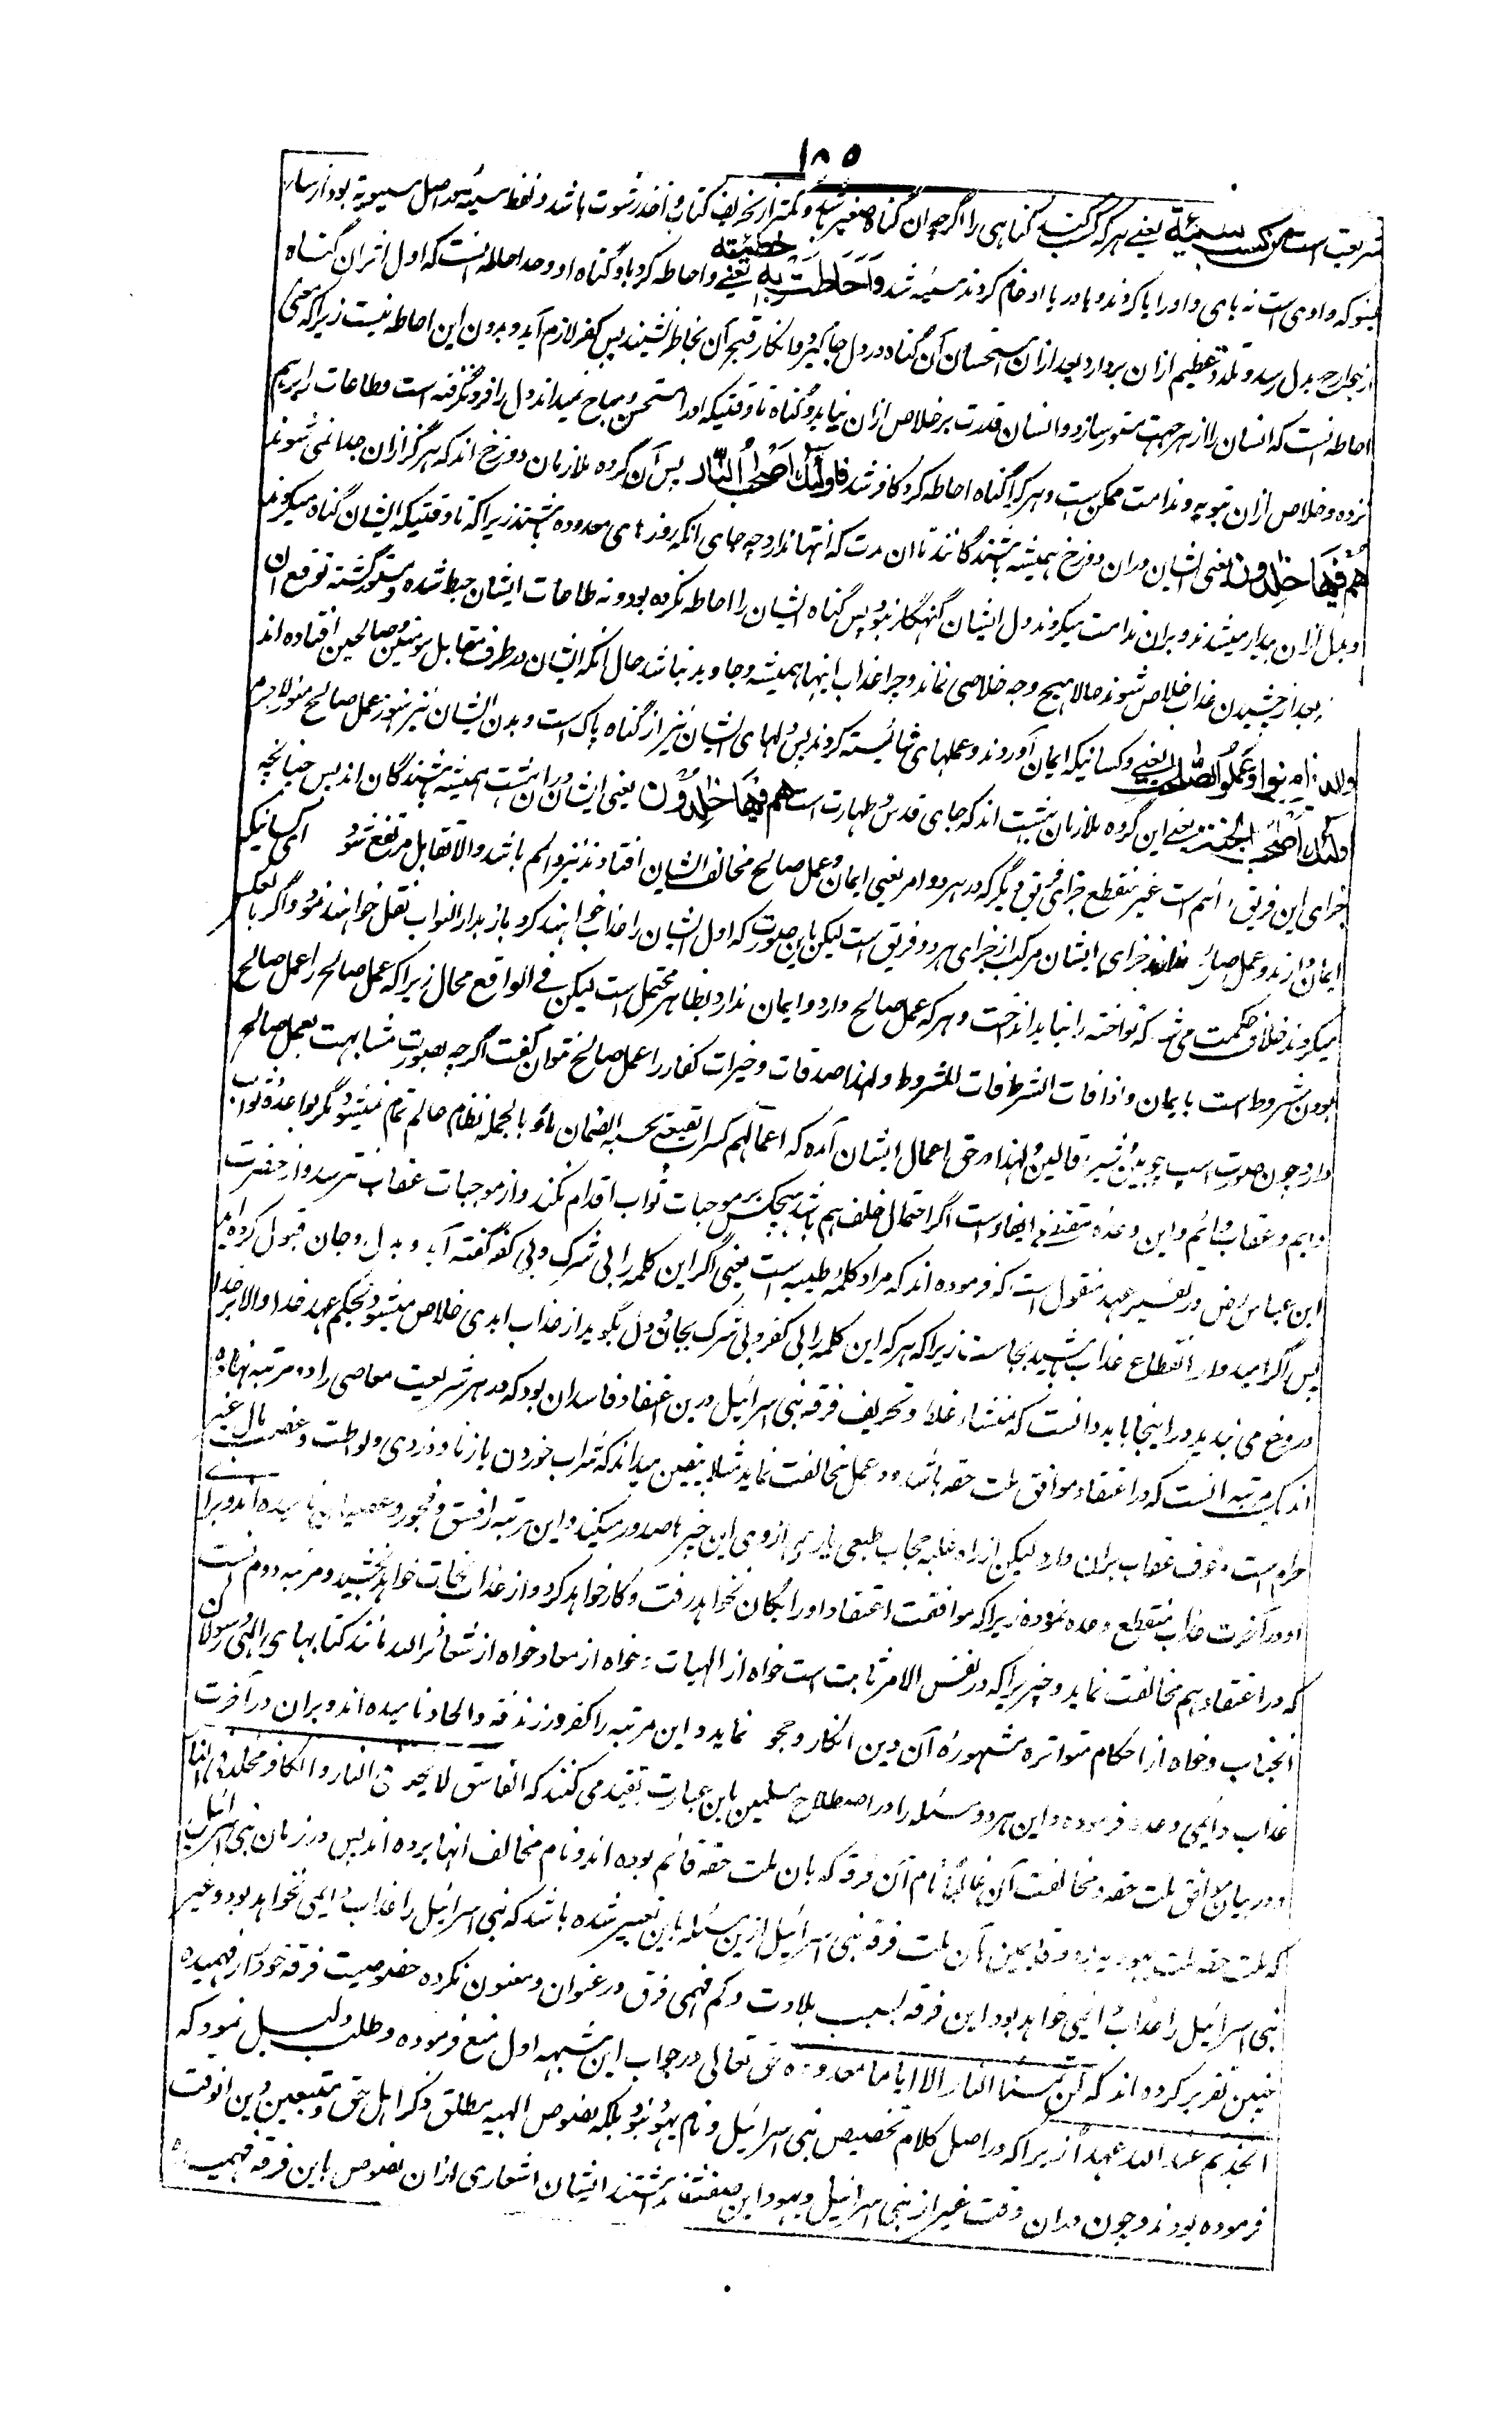 ۱۸۵
شریعت است من کسب سیئة یعنی هر که کسب کند گناهی را اگرچه آن گناه صغیر باشد و کمتر از تحریف کتاب و اخذ رشوت باشد و لفظ سیئه در اصل سیویة بود از ساء
یسوء که واوی است نه یایی واو را یا کردند و یا در یا ادغام کردند سیئه شد و احاطت به خطیئته یعنی و احاطه کرد باو گناه او و حد احاطه آنست که اول اثر آن گناه
از جوارح بدل رسد و تلذذ عظیم ازان بردارد و بعد ازان استحسان آن گناه در دل جا گیرد و انکار قبح آن بخاطر نشیند پس کفر لازم آید و بدون این احاطه نیست زیرا که معنی
احاطه آنست که انسان را از هر جهت مستور سازد و انسان قدرت بر خلاص ازان نیابد و گناه تا وقتیکه او را مستحسن و مباح نمیداند دل را فرو نگرفته است و طاعات را برهم
نزده و خلاص ازان بتوبه و ندامت ممکن است و هر کرا گناه احاطه کرد کافر شد فاولئک اصحاب النار پس آن گروه ملازمان دوزخ اند که هرگز ازان جدا نمی شوند
هم فیها خالدون یعنی ایشان دران دوزخ همیشه باشندگانند تا آن مدت که انتها ندارد چه جای آنکه روزهای معدوده باشند زیرا که تا وقتیکه ایشان گناه میکردند
و بدل ازان بیزار میشدند و بران ندامت میکردند دل ایشان گنهگار نبود پس گناه ایشان را احاطه نکرده بود و نه طاعات ایشان حبط شده و مستور گشته توقع آن
بعد از چشیدن عذاب خلاص شوند حالا هیچ وجه خلاصی نماند و چرا عذاب اینها همیشه و جاوید نباشد حال آنکه ایشان در طرف مقابل مومنین و صالحین افتاده اند
والذین آمنوا و عملوا الصالحات یعنی و کسانیکه ایمان آوردند و عملهای شائسته کردند پس دلهای ایشان نیز از گناه پاک است و بدن ایشان نیز بنور عمل صالح منور لاجرم
اولئک اصحاب الجنة یعنی این گروه ملازمان بهشت اند که جای قدس و طهارت است هم فیها خالدون یعنی ایشان دران بهشت همیشه باشندگان اند پس چنانچه
جزای این فریق دائم است غیر منقطع جزای فریق دیگر که در هر دو امر یعنی ایمان و عمل صالح مخالف ایشان افتادند نیز دائم باشد والا تقابل مرتفع شود آری کسانیکه
ایمان دارند و عمل صالح ندارند جزای ایشان مرکب از جزای هر دو فریق است لیکن باین صورت که اول ایشان را عذاب خواهند کرد باز بدار الثواب نقل خواهند نمود و اگر بالعکس
میکردند خلاف حکمت می شد که نواخته را نباید انداخت و هر که عمل صالح دارد و ایمان ندارد بظاهر محتمل است لیکن فی الواقع محال زیرا که عمل صالح را عمل صالح
بودن مشروط است بایمان و اذا فات الشرط فات المشروط و لهذا صدقات و خیرات کفار را عمل صالح نتوان گفت اگرچه بصورت مشابهت بعمل صالح
دارد چون صورت اسپ چوبین و شیر قالین و لهذا در حق اعمال ایشان آمده که اعمالهم کسراب بقیعة یحسبه الظمآن ماء بالجمله نظام عالم تمام نمیشود مگر بوعده ثواب
دایم و عقاب دائم و این وعده مقتضی ایفاء است اگر احتمال خلف هم باشد هیچکس بر موجبات ثواب اقدام نکند و از موجبات عقاب نترسد و از حضرت
ابن عباس رض در تفسیر عهد منقول است که فرموده اند که مراد کلمه طیبه است یعنی اگر این کلمه را بی شرک و بی کفر گفته آید و بدل و جان قبول کرده اید
پس اگر امیدوار انقطاع عذاب باشید بجاست زیرا که هر که این کلمه را بی کفر و بی شرک بجان و دل بگوید از عذاب ابدی خلاص میشود بحکم عهد خدا والا بر خدا
دروغ می بندید در اینجا باید دانست که منشاء غلط و تحریف فرقه بنی اسرائیل درین اعتقاد فاسد آن بود که در هر شریعت معاصی را دو مرتبه نهاده
اند یک مرتبه آنست که در اعتقاد موافق ملت حقه باشد و در عمل مخالفت نماید مثلا بیقین میداند که شراب خوردن یا زنا و دزدی و لواطت و غصب مال غیر
حرام است و خوف عقاب بران دارد لیکن از راه غلبه حجاب طبعی یا رسمی از وی این چیزها صدور میکند و این مرتبه را فسق و فجور و عصیان نامیده اند و برا
او در آخرت عذاب منقطع وعده نموده زیرا که موافقت اعتقاد او رایگان نخواهد رفت و کار خواهد کرد و از عذاب نجات خواهد بخشید و مرتبه دوم آنست
که در اعتقاد هم مخالفت نماید و چیزیرا که در نفس الامر ثابت است خواه از الهیات و خواه از معاد خواه از شعائر الله مانند کتابهای الهی و رسولان
آنجناب و خواه از احکام متواتره مشهوره آن دین انکار و جحود نماید و این مرتبه را کفر و زندقه و الحاد نامیده اند و بران در آخرت
عذاب دائمی وعده فرموده و این هر دو مسئله را در اصطلاح مسلمین باین عبارت تقید می کنند که الفاسق لا یخلد فی النار و الکافر مخلد فی النار
و در بیان موافق ملت حقه و مخالفت آن غالبا نام آن فرقه که بان ملت حقه قائم بوده اند و نام مخالف آنها برده اند پس در زمان بنی اسرائیل
که ملت حقه ملت یهودیه بود و قائمین آن ملت فرقه بنی اسرائیل ازین مسئله باین تعبیر شده باشد که بنی اسرائیل را عذاب دائمی نخواهد بود و غیر
بنی اسرائیل را عذاب دائمی خواهد بود این فرقه بسبب بلادت و کم فهمی فرق در عنوان و معنون نکرده خصوصیت فرقه خود را فهمیده
چنین تقریر کرده اند که لن تمسنا النار الا ایاما معدودة حق تعالی در جواب این شبهه اول منع فرموده و طلب دلیل نمود که
اتخذتم عند الله عهدا زیرا که در اصل کلام تخصیص بنی اسرائیل و نام یهود نبود بلکه نصوص الهیه مطلق ذکر اهل حق و متبعین دین آنوقت
فرموده بودند و چون دران وقت غیر از بنی اسرائیل و یهود این صفت نداشتند ایشان اشعاری ازان نصوص باین فرقه فهمیده